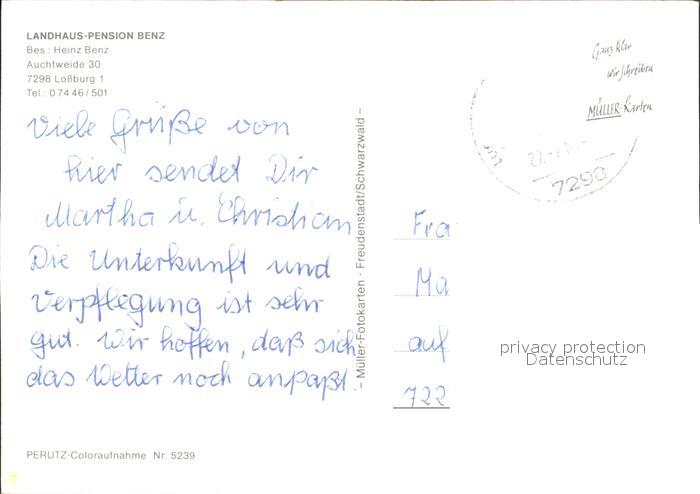 LANDHAUS-PENSION BENZ
Bes.: Heinz Benz
Auchtweide 30
7298 Loßburg 1
Tel.: 0 74 46 / 501
Viele Grüße von
hier sendet Dir
Martha u. Christian
Die Unterkunft und
Verpflegung ist sehr
gut. Wir hoffen, daß sich
das Wetter noch anpaßt.
PERUTZ-Coloraufnahme Nr. 5239
– Müller-Fotokarten · Freudenstadt/Schwarzwald –
Ganz klar
wir schreiben
MÜLLER-Karten
7298
Fra
Ma
auf
722
privacy protection
Datenschutz